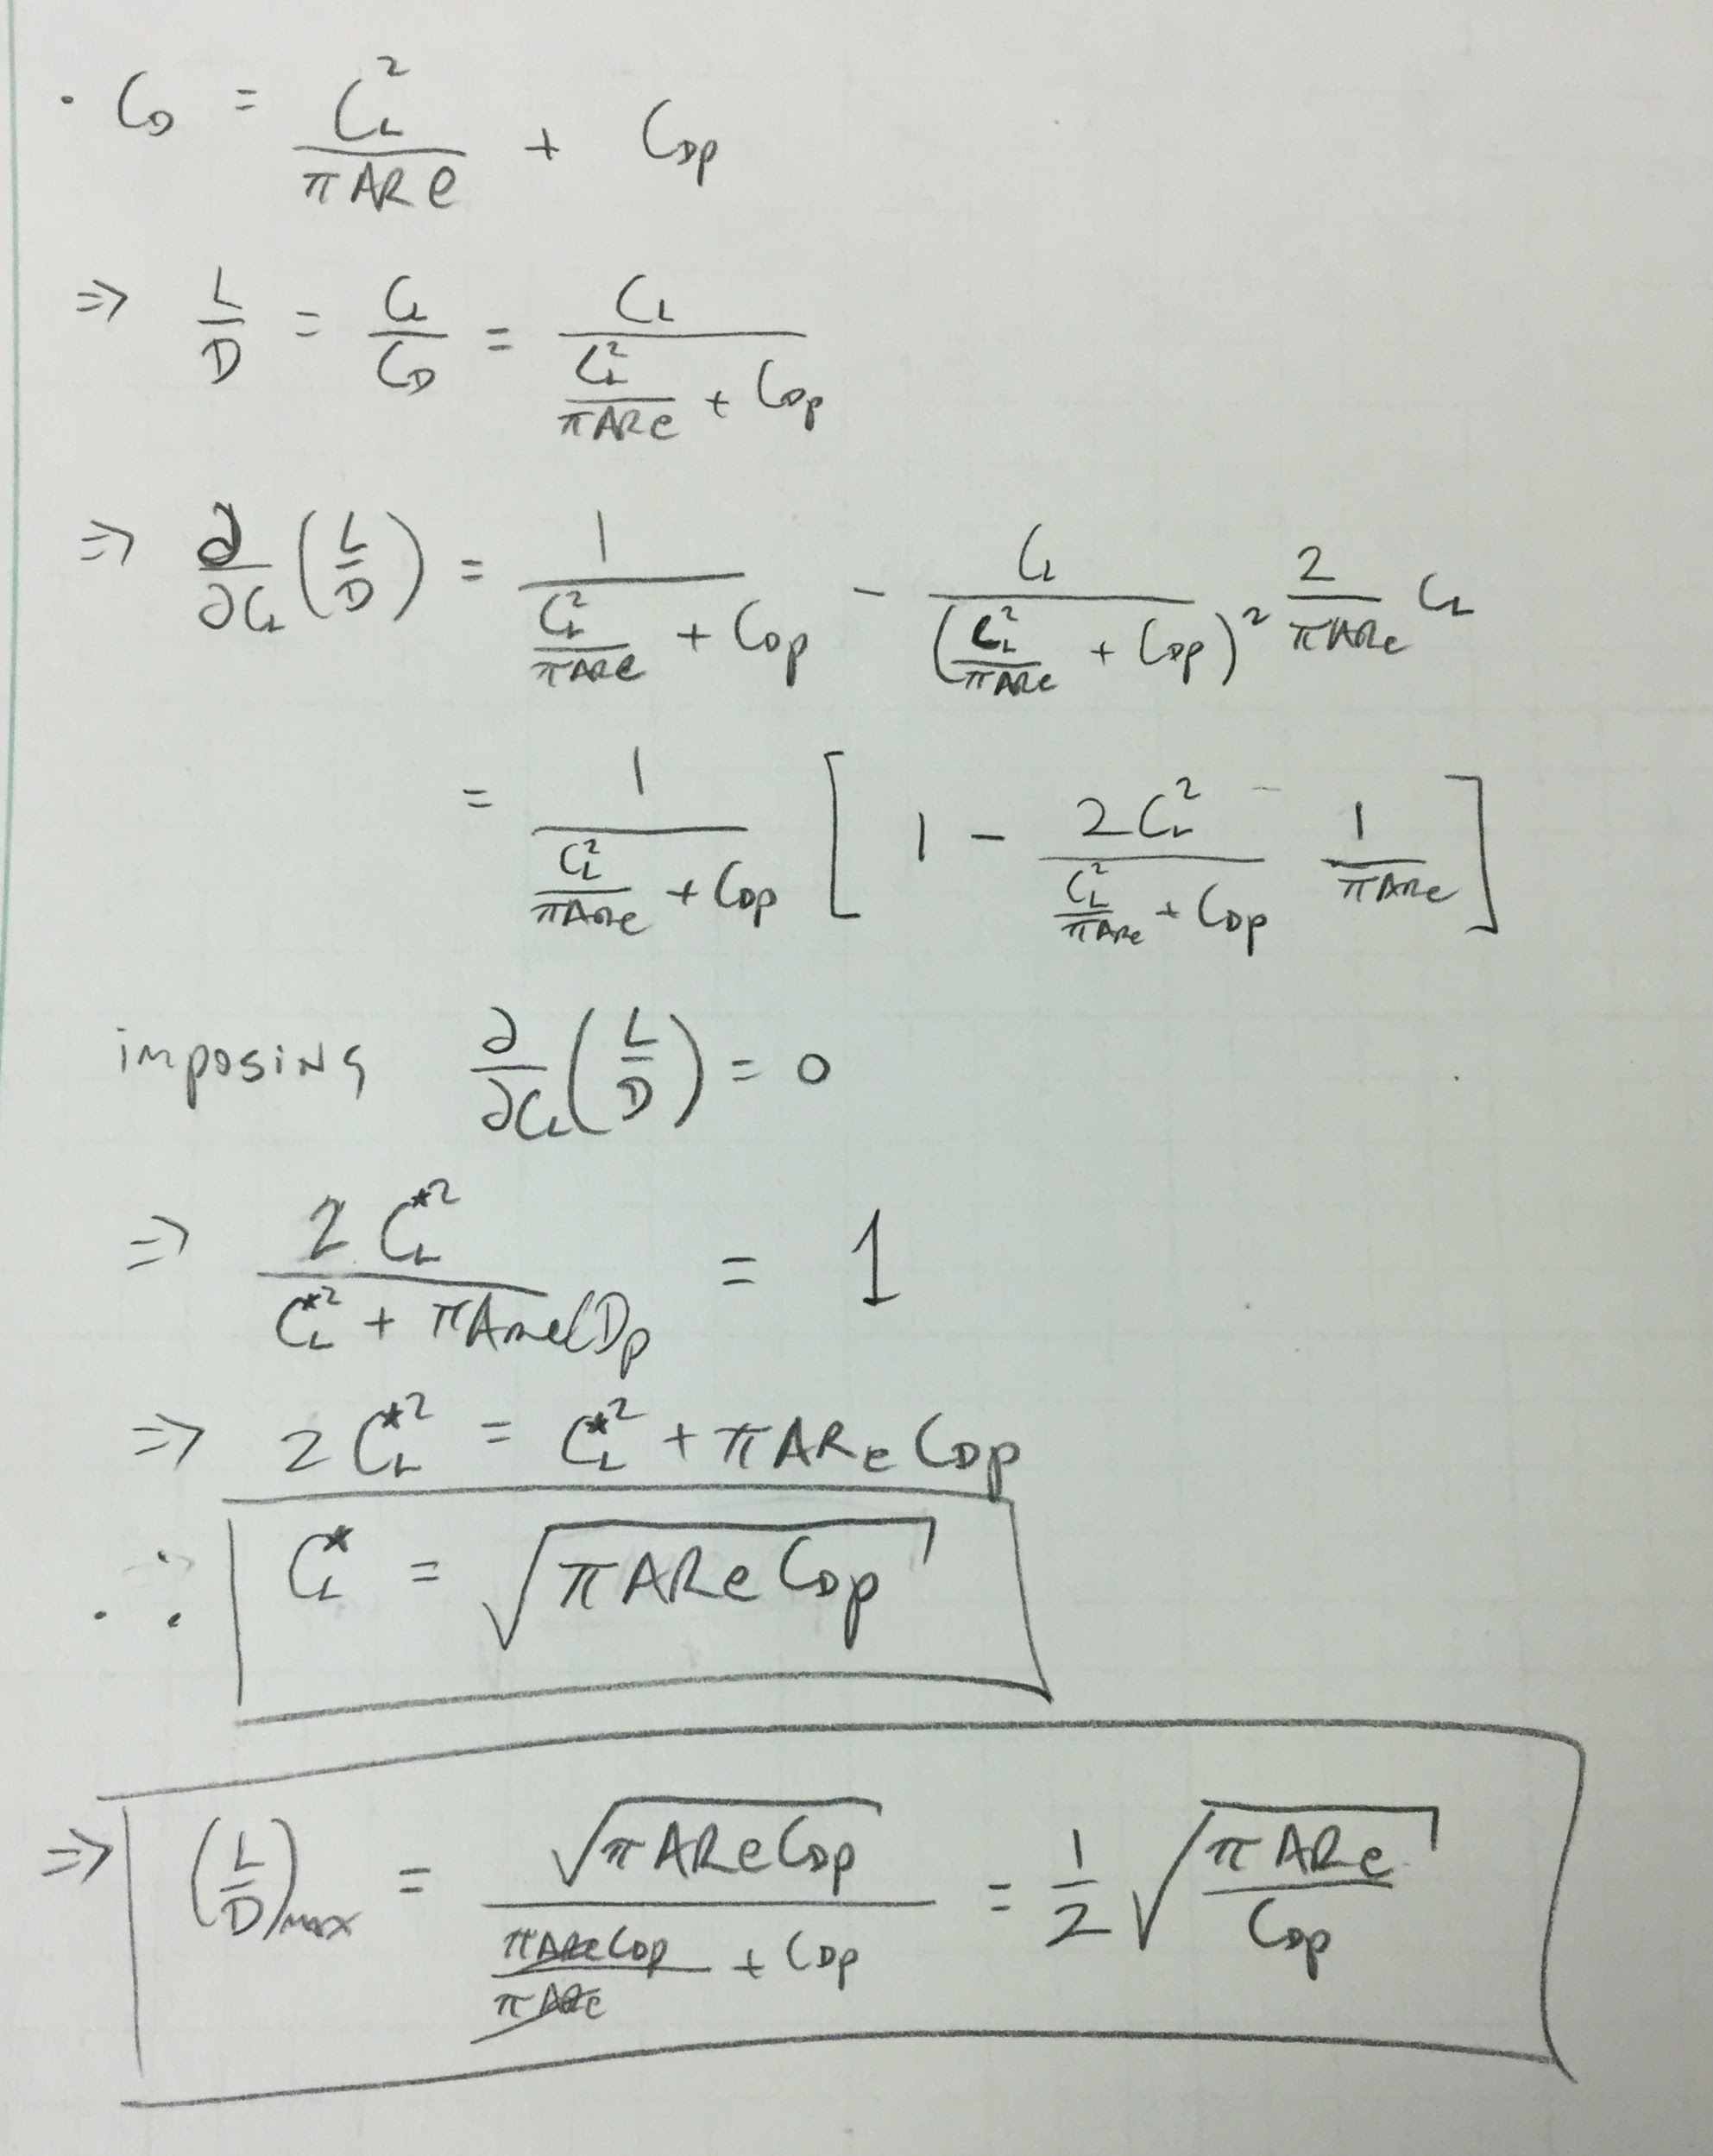 · C_D = C_L^2 / (π AR e) + C_Dp
⇒ L/D = C_L/C_D = C_L / (C_L^2/(π AR e) + C_Dp)
⇒ ∂/∂C_L (L/D) = 1 / (C_L^2/(π AR e) + C_Dp) − C_L / (C_L^2/(π AR e) + C_Dp)^2 2/(π AR e) C_L
= 1 / (C_L^2/(π AR e) + C_Dp) [ 1 − 2 C_L^2 / (C_L^2/(π AR e) + C_Dp) 1/(π AR e) ]
imposing ∂/∂C_L (L/D) = 0
⇒ 2 C_L^*2 / (C_L^*2 + π AR e C_Dp) = 1
⇒ 2 C_L^*2 = C_L^*2 + π AR e C_Dp
∴ C_L^* = √(π AR e C_Dp)
⇒ (L/D)_max = √(π AR e C_Dp) / (π AR e C_Dp/(π AR e) + C_Dp) = 1/2 √(π AR e / C_Dp)